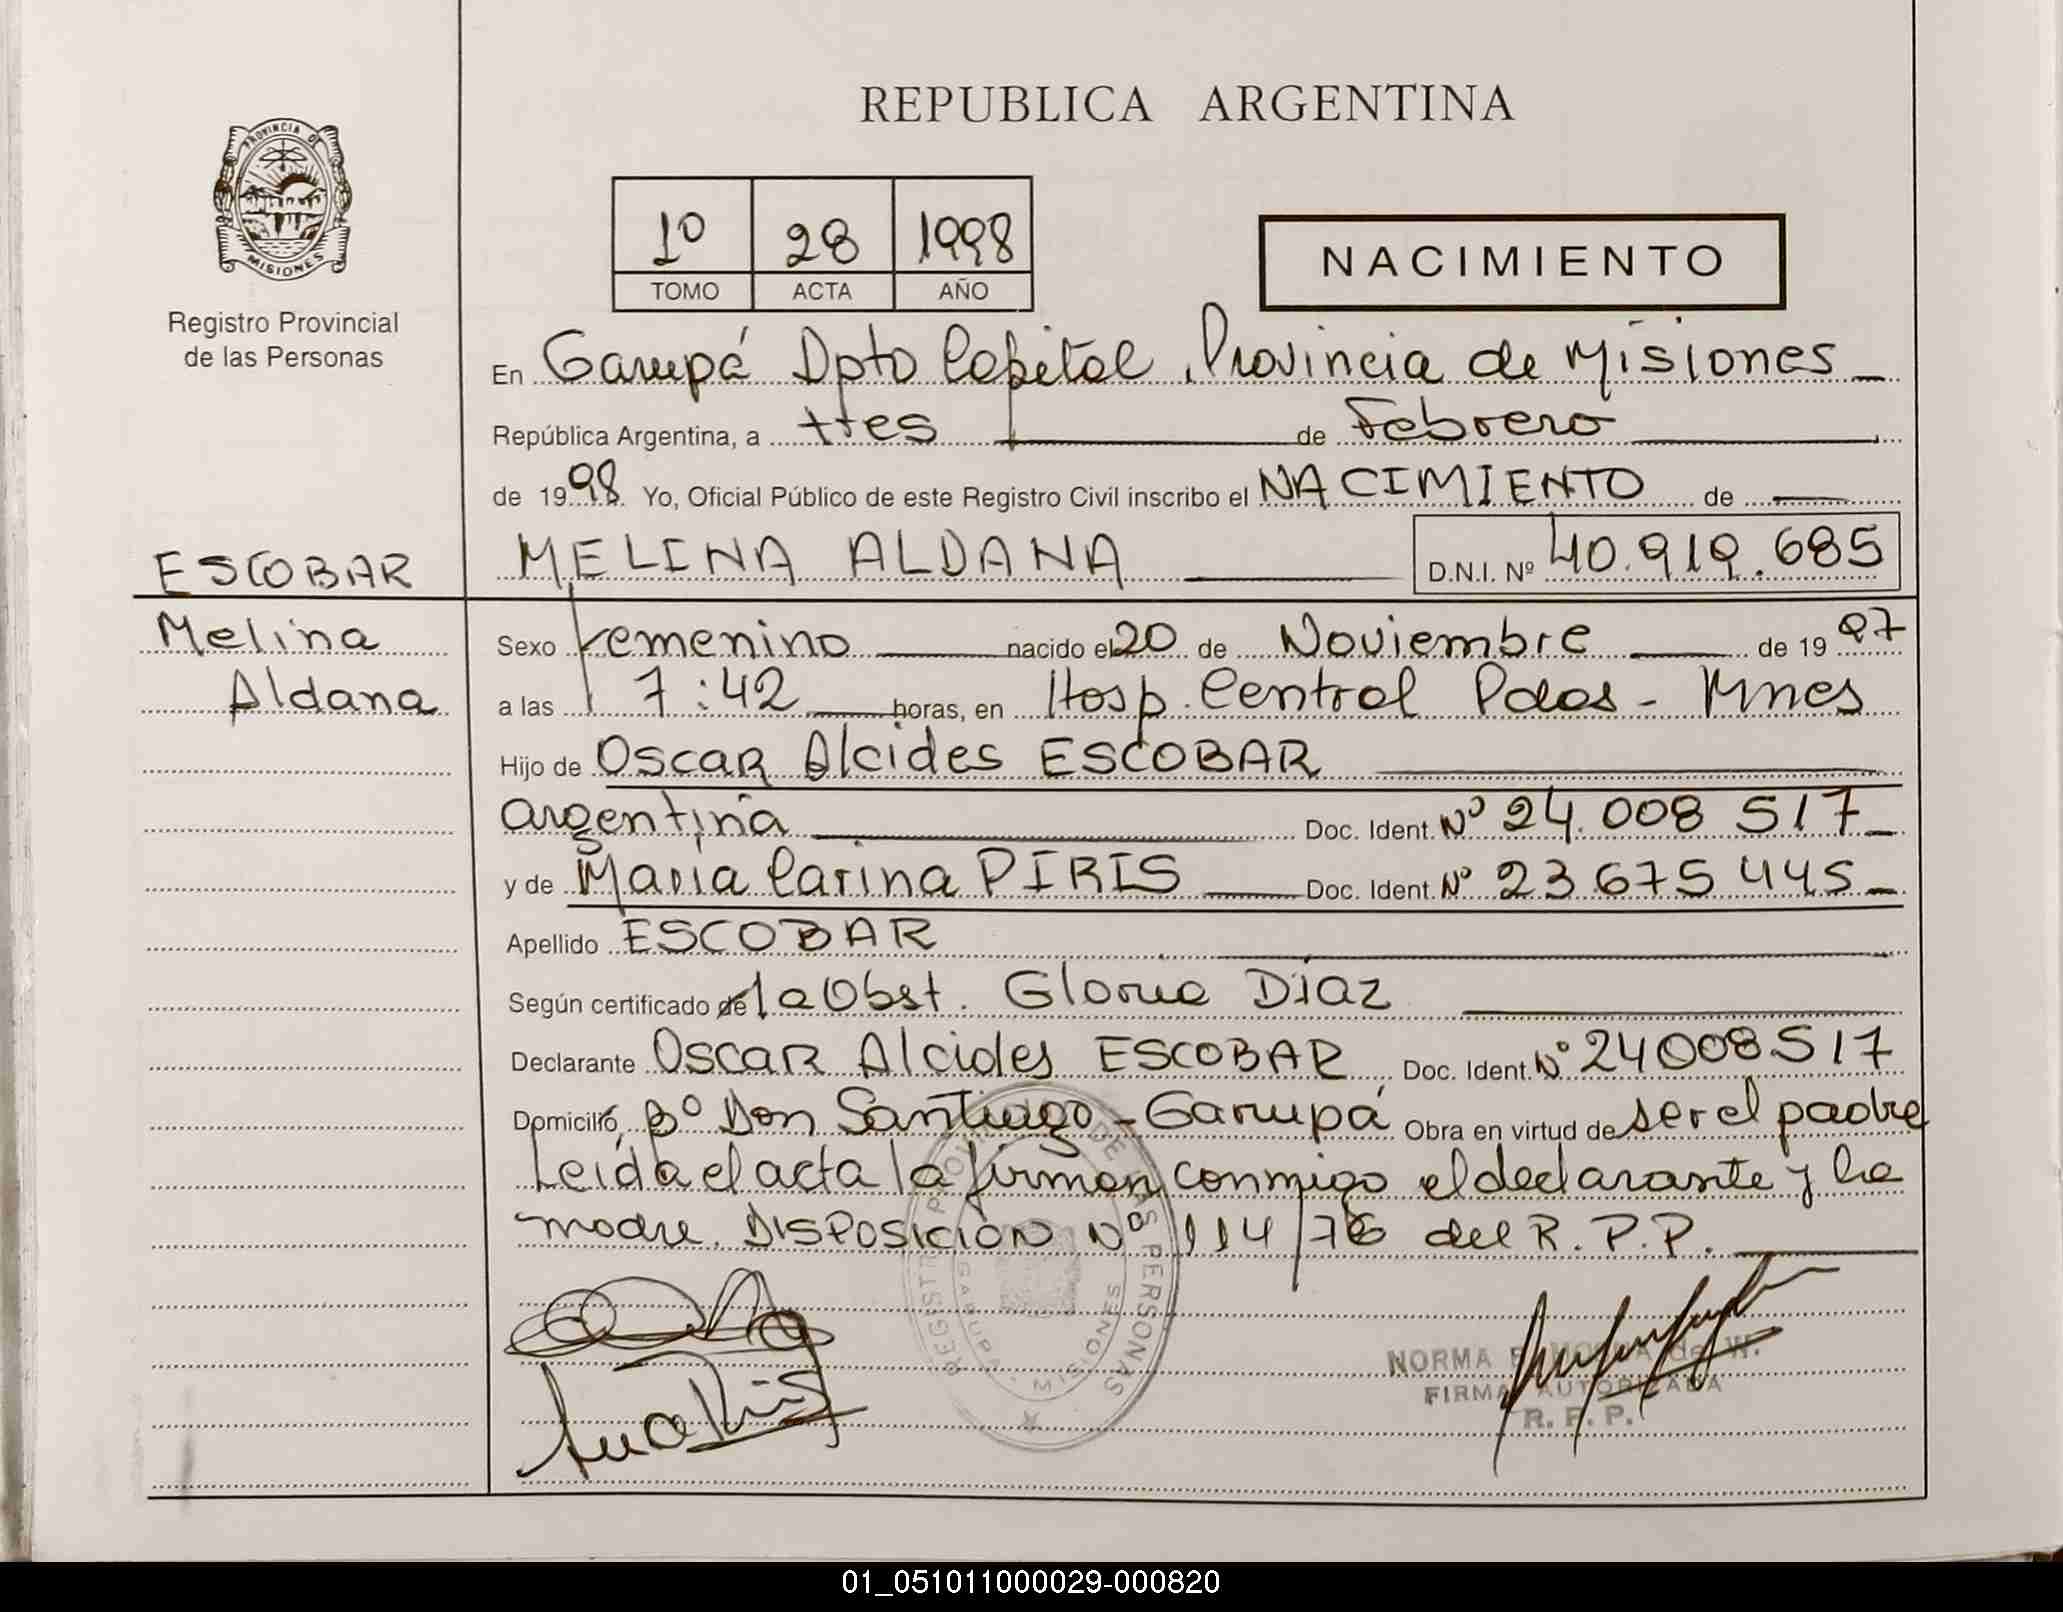 REPUBLICA ARGENTINA
PROVINCIA DE
MISIONES
Registro Provincial
de las Personas
1º 28 1998
TOMO ACTA AÑO
NACIMIENTO
En Garupá Dpto Capital, Provincia de Misiones
República Argentina, a tres de Febrero
de 1998 Yo, Oficial Público de este Registro Civil inscribo el NACIMIENTO de
ESCOBAR
MELINA ALDANA D.N.I. Nº 40.919.685
Melina
Aldana
Sexo Femenino nacido el 20 de Noviembre de 1997
a las 7:42 horas, en Hosp. Central Pdas - Mnes
Hijo de Oscar Alcides ESCOBAR
argentina Doc. Ident. Nº 24.008 517
y de Maria Carina PIRIS Doc. Ident. Nº 23.675 445
Apellido ESCOBAR
Según certificado de la Obst. Gloria Diaz
Declarante Oscar Alcides ESCOBAR Doc. Ident. Nº 24008517
Domicilio Bº Don Santiago - Garupá Obra en virtud de ser el padre
Leida el acta la firman conmigo el declarante y la
madre. DISPOSICIÓN Nº 114/76 del R.P.P.
REGISTRO PROVINCIAL DE LAS PERSONAS
GARUPA MISIONES
NORMA de W.
FIRMA AUTORIZADA
R. P. P.
01_051011000029-000820